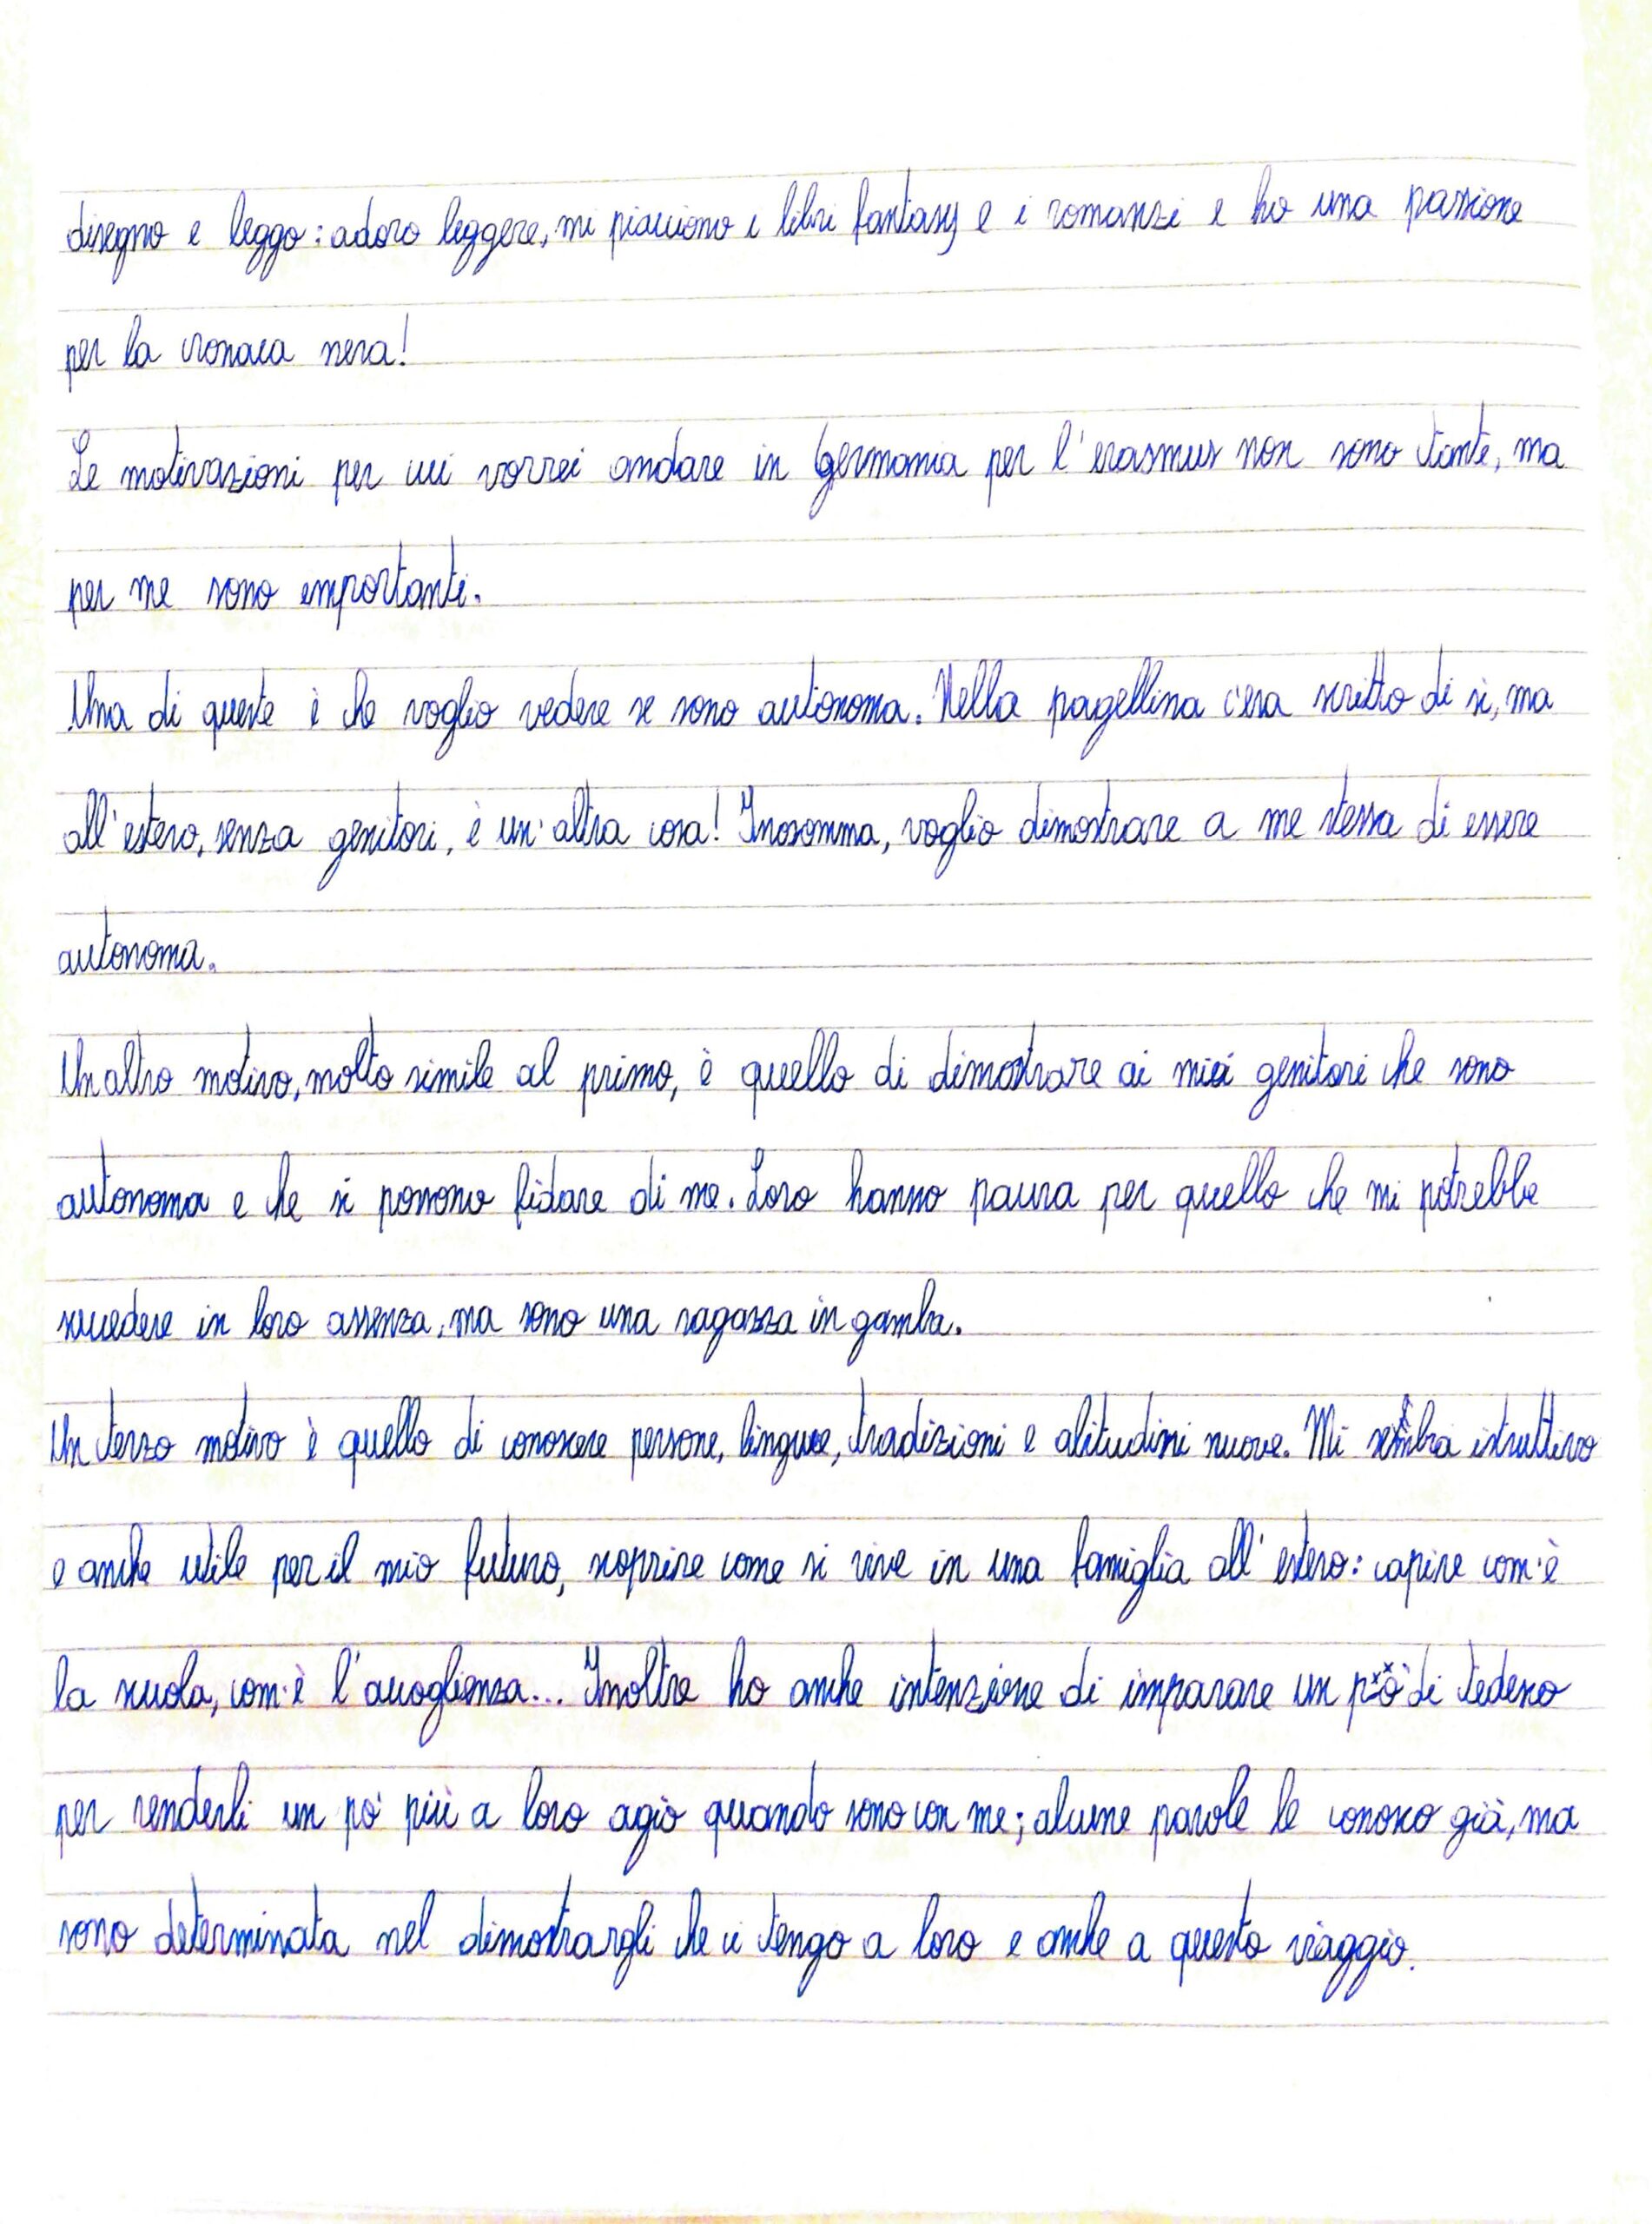 disegno e leggo: adoro leggere, mi piacciono i libri fantasy e i romanzi e ho una passione
per la cronaca nera!
Le motivazioni per cui vorrei andare in Germania per l'erasmus non sono tante, ma
per me sono importanti.
Una di queste è che voglio vedere se sono autonoma. Nella pagellina c'era scritto di sì, ma
all'estero, senza genitori, è un'altra cosa! Inosomma, voglio dimostrare a me stessa di essere
autonoma.
Un altro motivo, molto simile al primo, è quello di dimostrare ai miei genitori che sono
autonoma e che si possono fidare di me. Loro hanno paura per quello che mi potrebbe
succedere in loro assenza, ma sono una ragazza in gamba.
Un terzo motivo è quello di conoscere persone, lingue, tradizioni e abitudini nuove. Mi sembra istruttivo
e anche utile per il mio futuro, scoprire come si vive in una famiglia all'estero: capire com'è
la scuola, com'è l'accoglienza... Inoltre ho anche intenzione di imparare un pò di tedesco
per renderli un po' più a loro agio quando sono con me; alcune parole le conosco già, ma
sono determinata nel dimostrargli che ci tengo a loro e anche a questo viaggio.